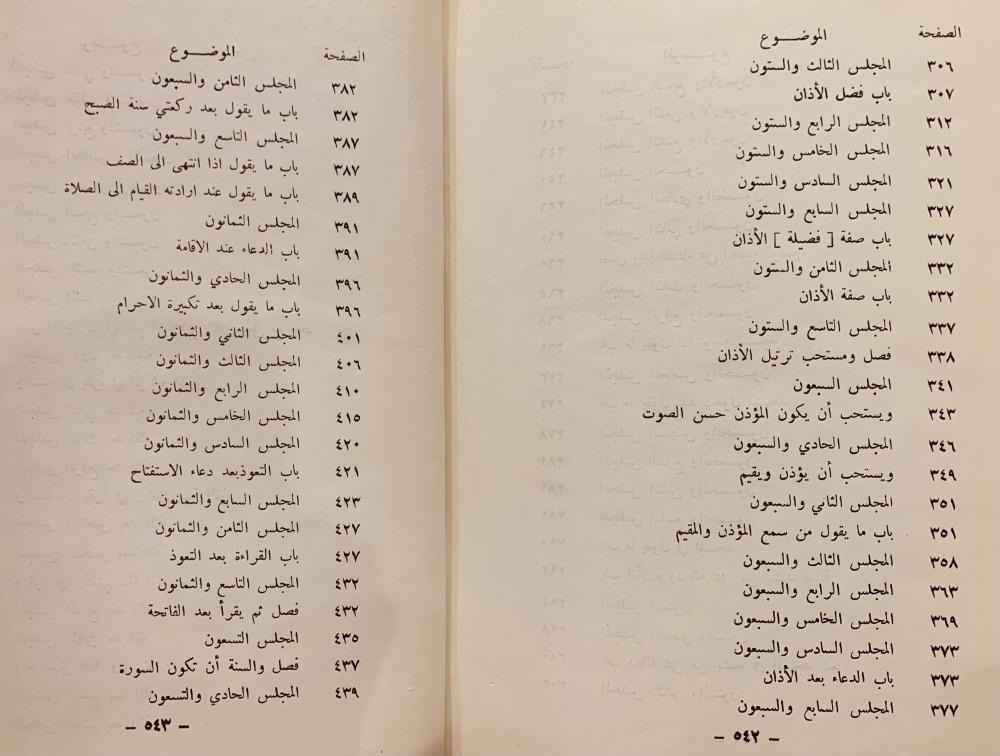 الموضوع الصفحة
المجلس الثالث والستون ٣٠٦
باب فضل الأذان ٣٠٧
المجلس الرابع والستون ٣١٢
المجلس الخامس والستون ٣١٦
المجلس السادس والستون ٣٢١
المجلس السابع والستون ٣٢٧
باب صفة [ فضيلة ] الأذان ٣٢٧
المجلس الثامن والستون ٣٣٢
باب صفة الأذان ٣٣٢
المجلس التاسع والستون ٣٣٧
فصل ومستحب ترتيل الأذان ٣٣٨
المجلس السبعون ٣٤١
ويستحب أن يكون المؤذن حسن الصوت ٣٤٣
المجلس الحادي والسبعون ٣٤٦
ويستحب أن يؤذن ويقيم ٣٤٩
المجلس الثاني والسبعون ٣٥١
باب ما يقول من سمع المؤذن والمقيم ٣٥١
المجلس الثالث والسبعون ٣٥٨
المجلس الرابع والسبعون ٣٦٣
المجلس الخامس والسبعون ٣٦٩
المجلس السادس والسبعون ٣٧٣
باب الدعاء بعد الأذان ٣٧٣
المجلس السابع والسبعون ٣٧٧
– ٥٤٢ –
الموضوع الصفحة
المجلس الثامن والسبعون ٣٨٢
باب ما يقول بعد ركعتي سنة الصبح ٣٨٢
المجلس التاسع والسبعون ٣٨٧
باب ما يقول اذا انتهى الى الصف ٣٨٧
باب ما يقول عند ارادته القيام الى الصلاة ٣٨٩
المجلس الثمانون ٣٩١
باب الدعاء عند الاقامة ٣٩١
المجلس الحادي والثمانون ٣٩٦
باب ما يقول بعد تكبيرة الاحرام ٣٩٦
المجلس الثاني والثمانون ٤٠١
المجلس الثالث والثمانون ٤٠٦
المجلس الرابع والثمانون ٤١٠
المجلس الخامس والثمانون ٤١٥
المجلس السادس والثمانون ٤٢٠
باب التعوذبعد دعاء الاستفتاح ٤٢١
المجلس السابع والثمانون ٤٢٣
المجلس الثامن والثمانون ٤٢٧
باب القراءة بعد التعوذ ٤٢٧
المجلس التاسع والثمانون ٤٣٢
فصل ثم يقرأ بعد الفاتحة ٤٣٢
المجلس التسعون ٤٣٥
فصل والسنة أن تكون السورة ٤٣٧
المجلس الحادي والتسعون ٤٣٩
– ٥٤٣ –